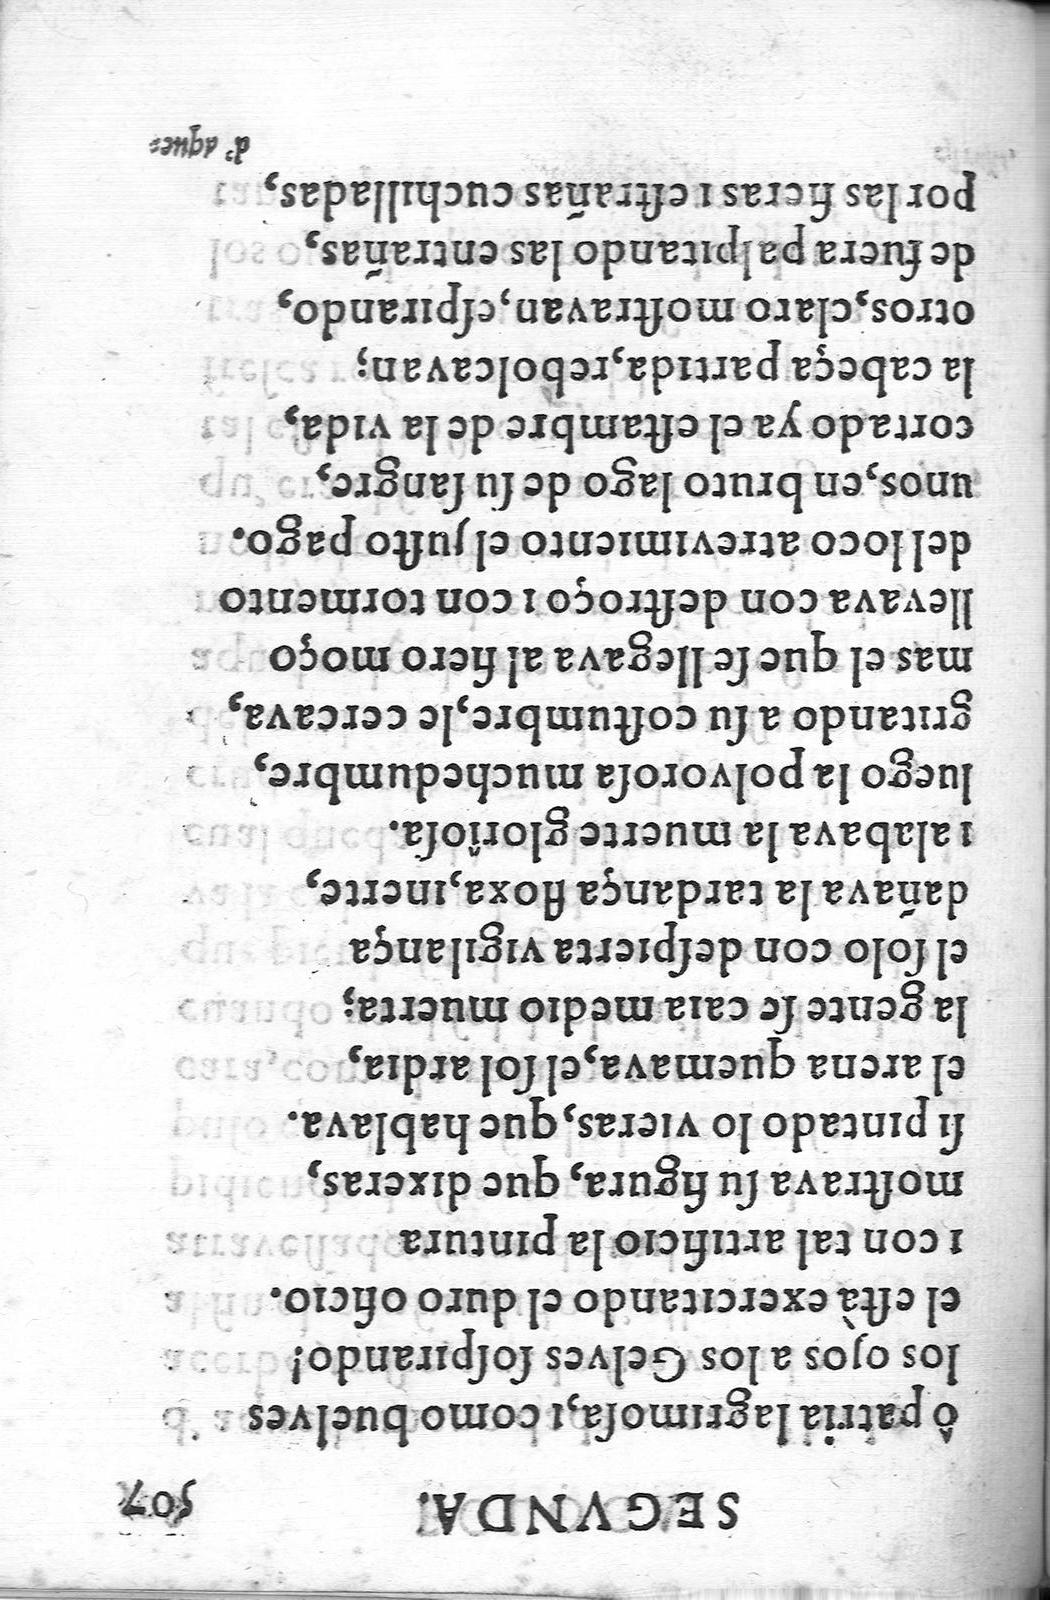 SEGVNDA. 307
ô patria lagrimoſa,ı como buelves
los ojos a los Gelves ſoſpirando!
el eſtà exercitando el duro oficio.
ı con tal artificio la pintura
moſtrava ſu figura, que dixeras,
ſi pintado lo vieras, que hablava.
el arena quemava,el ſol ardia,
la gente ſe caia medio muerta;
el ſolo con deſpierta vigilança
dañava la tardança floxa,inerte,
ı alabava la muerte glorîoſa.
luego la polvoroſa muchedumbre,
gritando a ſu coſtumbre,le cercava,
mas el que ſe llegava al fiero moço
llevava con deſtroço ı con tormento
del loco atrevimiento el juſto pago.
unos,en bruto lago de ſu ſangre,
cortado ya el eſtambre de la vida,
la cabeça partida,rebolcavan;
otros,claro moſtravan,eſpirando,
de fuera palpitando las entrañas,
por las fieras ı eſtrañas cuchilladas,
d' aque-